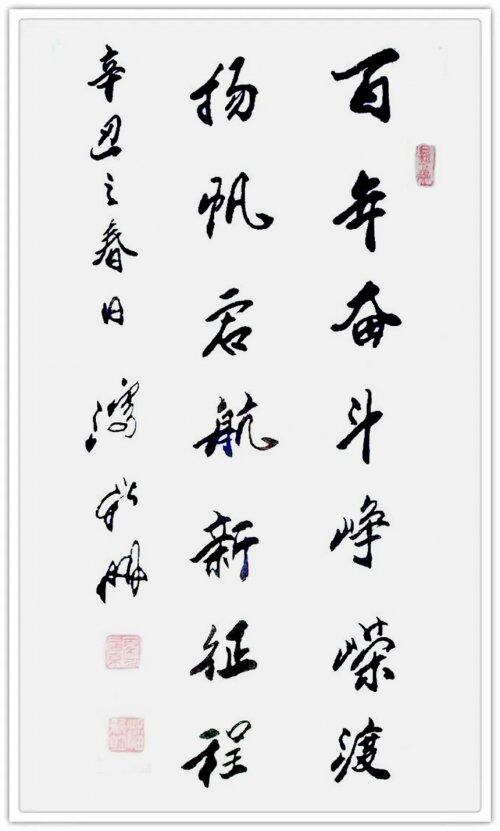 百年奋斗峥嵘渡
扬帆启航新征程
辛丑之春月